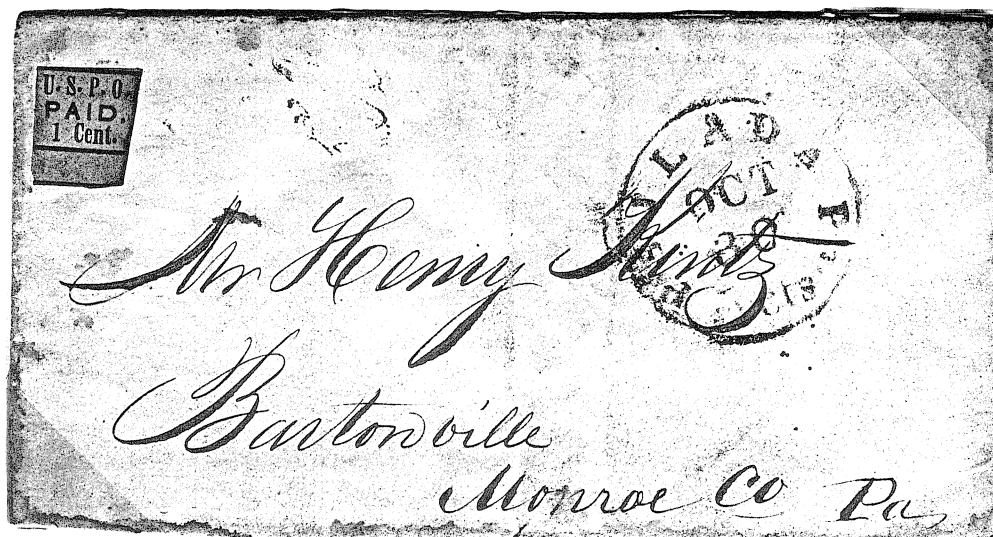 U.S.P.O.
PAID.
1 Cent.
PHILADA
OCT
30
cts
Mr Henry Kintz
Bartonville
Monroe Co Pa